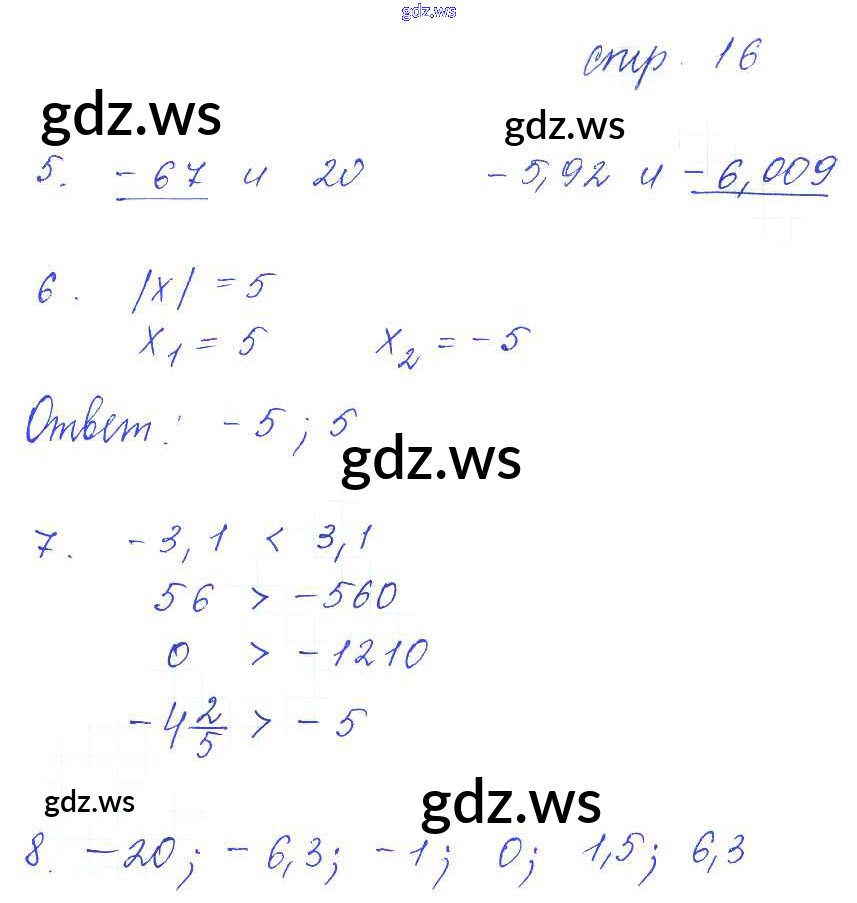 gdz.ws
стр. 16
gdz.ws gdz.ws
5. -67 и 20 -5,92 и -6,009
6. |x| = 5
x₁ = 5 x₂ = -5
Ответ: -5; 5
gdz.ws
7. -3,1 < 3,1
56 > -560
0 > -1210
-4 2/5 > -5
gdz.ws gdz.ws
8. -20; -6,3; -1; 0; 1,5; 6,3